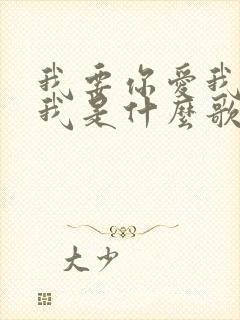 我要你愛我
我是什麼歌
大少